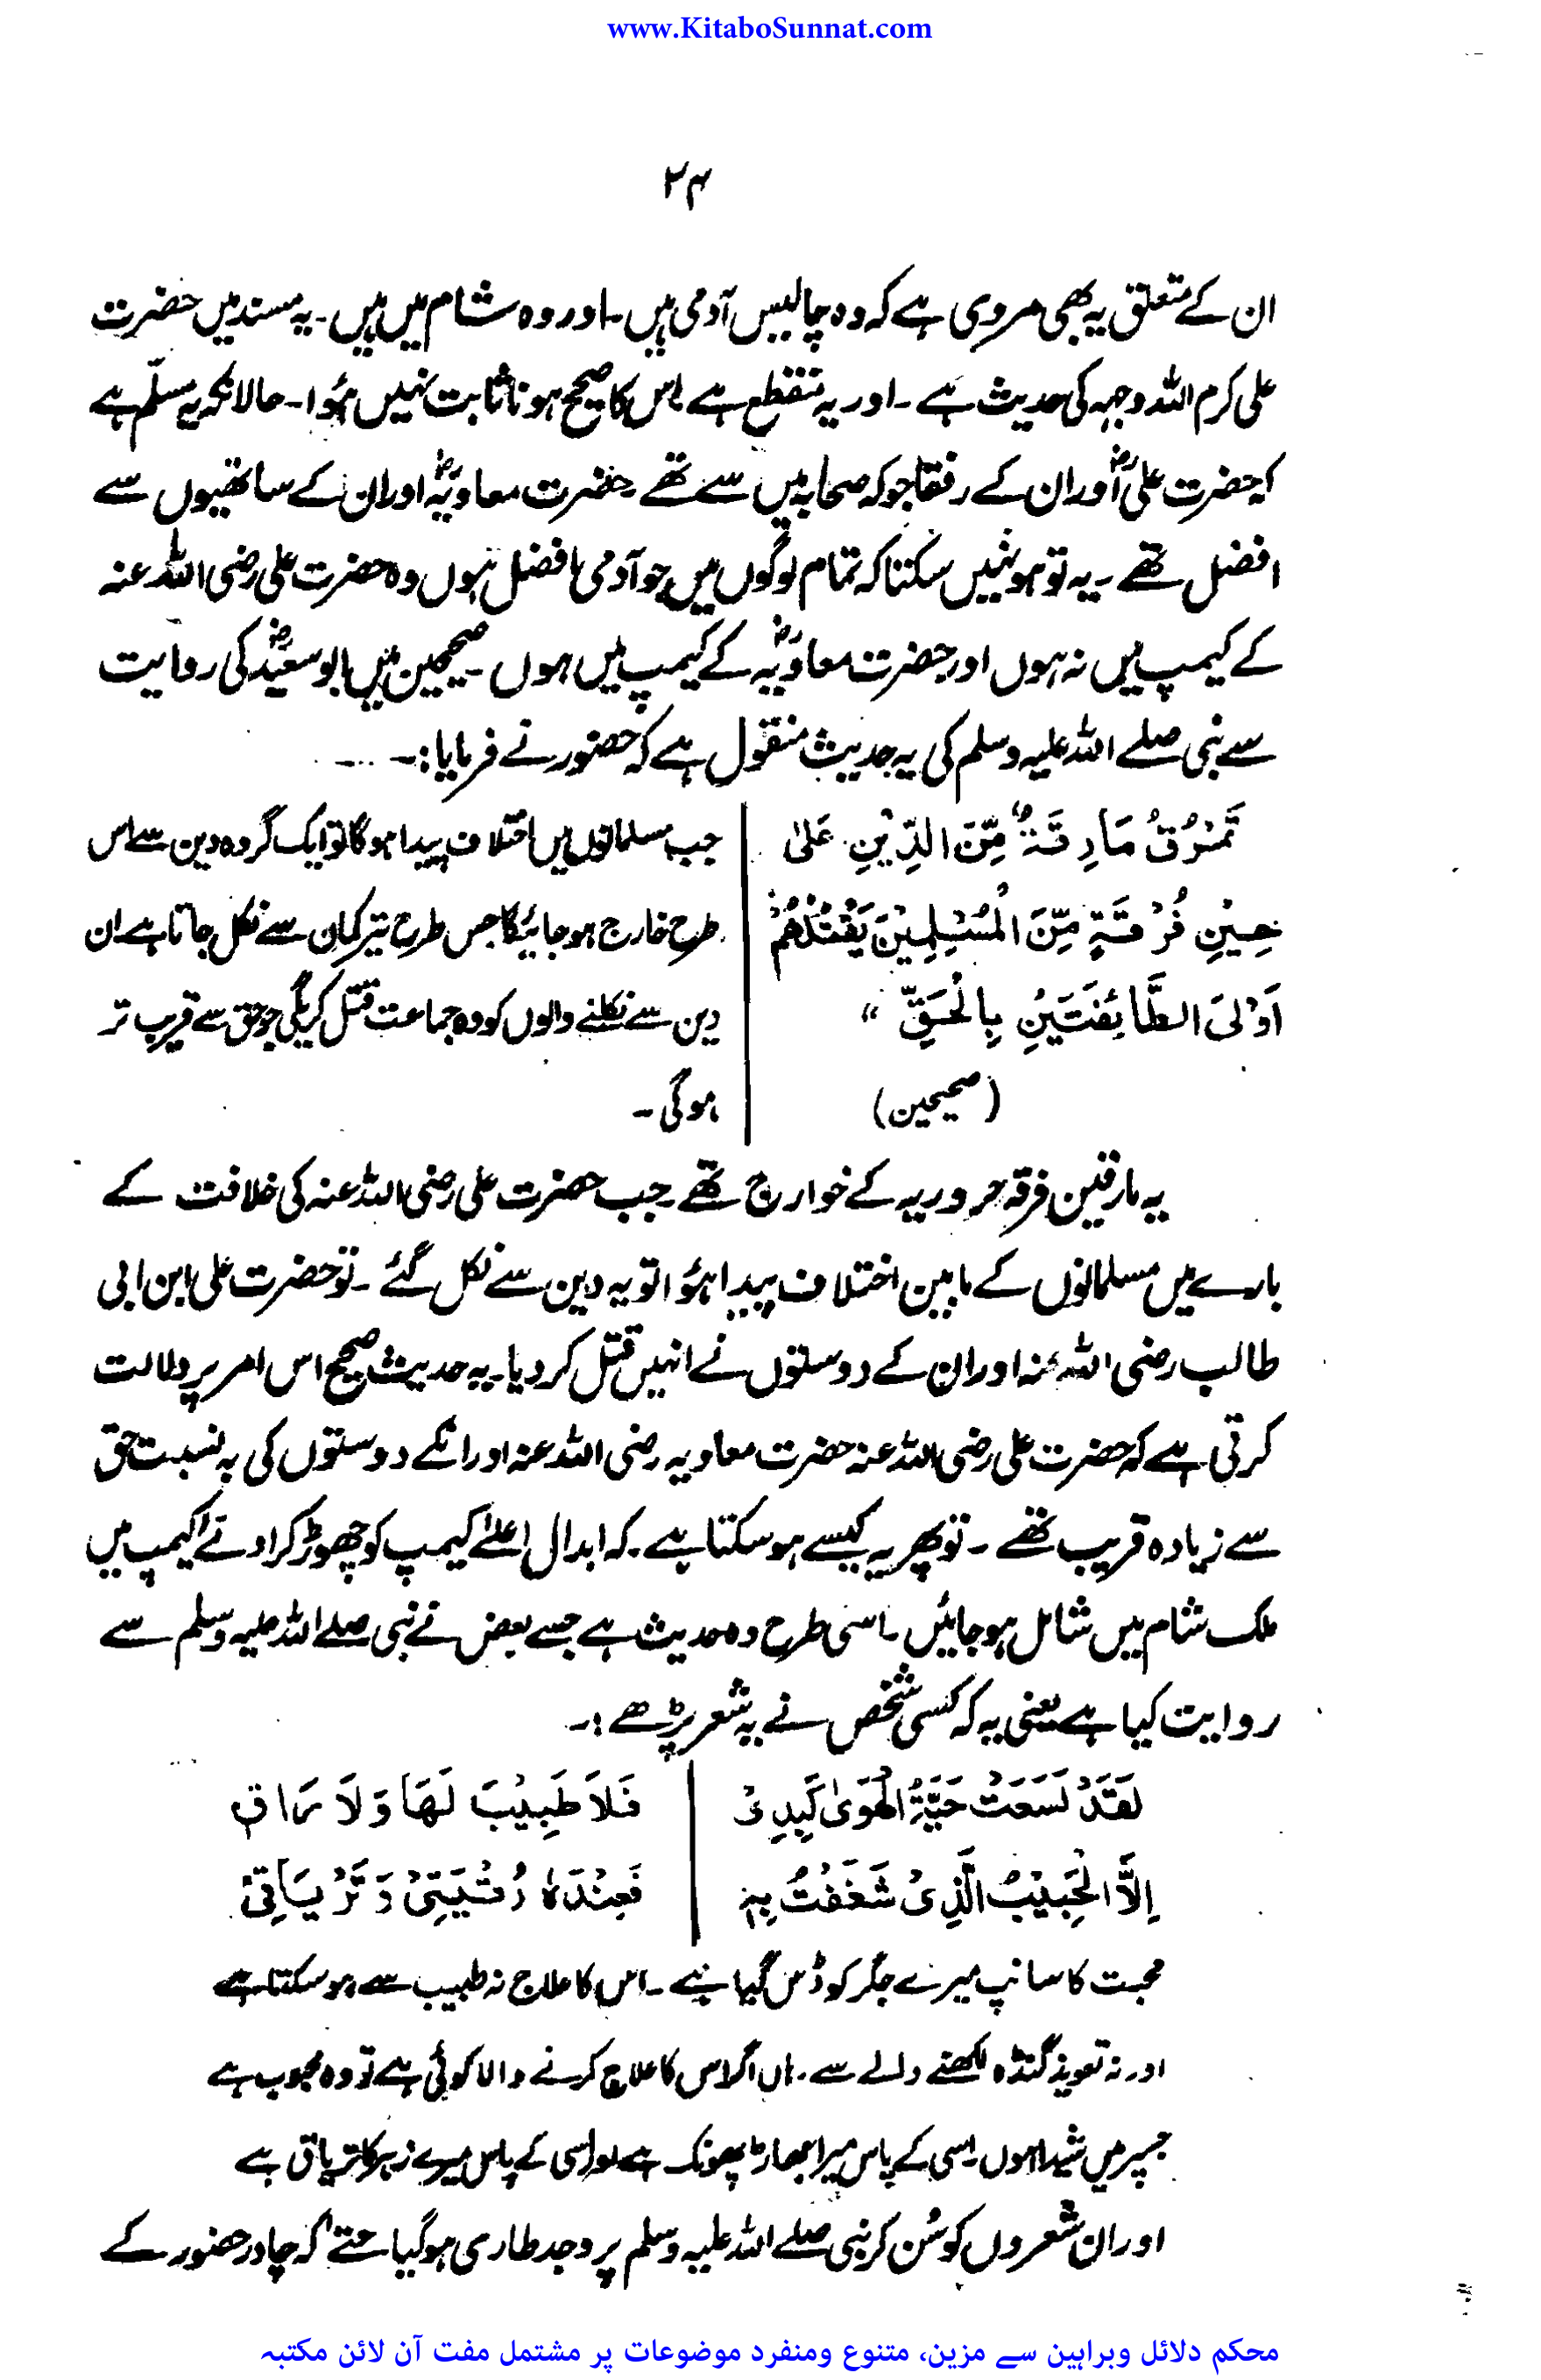 www.KitaboSunnat.com
۲۴
ان کے متعلق یہ بھی مروی ہے کہ وہ چالیس آدمی ہیں۔ اور وہ شام میں ہیں۔ یہ مسند میں حضرت
علی کرم اللہ وجہہ کی حدیث ہے۔ اور یہ منقطع ہے اس کا صحیح ہونا ثابت نہیں ہُوا۔ حالانکہ یہ مسلّم ہے
کہ حضرت علیؓ اور ان کے رفقا جو کہ صحابہ میں سے تھے۔ حضرت معاویہؓ اور ان کے ساتھیوں سے
افضل تھے۔ یہ تو ہو نہیں سکتا کہ تمام لوگوں میں جو آدمی افضل ہوں وہ حضرت علی رضی اللہ عنہ
کے کیمپ میں نہ ہوں اور حضرت معاویہؓ کے کیمپ میں ہوں۔ صحیحین میں ابو سعیدؓ کی روایت
سے نبی صلے اللہ علیہ وسلم کی یہ حدیث منقول ہے کہ حضور نے فرمایا:۔
تَمْرُقُ مَارِقَةٌ مِّنَ الدِّیْنِ عَلیٰ
حِیْنِ فُرْقَةٍ مِّنَ الْمُسْلِمِیْنَ یَقْتُلُهُمْ
اَوْلَی الطَّائِفَتَیْنِ بِالْحَقِّ "
(صحیحین)
جب مسلمانوں میں اختلاف پیدا ہوگا تو ایک گروہ دین سے اس
طرح خارج ہو جائیگا جس طرح تیر کمان سے نکل جاتا ہے ان
دین سے نکلنے والوں کو وہ جماعت قتل کریگی جو حق سے قریب تر
ہوگی۔
یہ مارقین فرقہ حروریہ کے خوارج تھے۔ جب حضرت علی رضی اللہ عنہ کی خلافت کے
بارے میں مسلمانوں کے مابین اختلاف پیدا ہُوا تو یہ دین سے نکل گئے۔ تو حضرت علی ابن ابی
طالب رضی اللہ عنہ اور ان کے دوستوں نے انہیں قتل کر دیا۔ یہ حدیث صحیح اس امر پر دلالت
کرتی ہے کہ حضرت علی رضی اللہ عنہ حضرت معاویہ رضی اللہ عنہ اور انکے دوستوں کی بہ نسبت حق
سے زیادہ قریب تھے۔ تو پھر یہ کیسے ہو سکتا ہے۔ کہ ابدال اعلےٰ کیمپ کو چھوڑ کر ادنےٰ کیمپ میں
ملک شام میں شامل ہو جائیں۔ اسی طرح وہ حدیث ہے جسے بعض نے نبی صلے اللہ علیہ وسلم سے
روایت کیا ہے یعنی یہ کہ کسی شخص نے یہ شعر پڑھے:۔
لَقَدْ لَسَعَتْ حَیَّةُ الْهَوٰی كَبِدِیْ | فَلَا طَبِیْبَ لَهَا وَلَا رَاقٖ
اِلَّا الْحَبِیْبُ الَّذِیْ شَغَفْتُ بِهٖ | فَعِنْدَهٗ رُقْیَتِیْ وَتَرْیَاقِیْ
محبت کا سانپ میرے جگر کو ڈس گیا ہے۔ اس کا علاج نہ طبیب سے ہو سکتا ہے
اور نہ تعویذ گنڈہ لکھنے والے سے۔ ہاں اگر اس کا علاج کرنے والا کوئی ہے تو وہ محبوب ہے
جسپر میں شیدا ہوں۔ اسی کے پاس میرا جھاڑ پھونک ہے اور اسی کے پاس میرے زہر کا تریاق ہے
اور ان شعروں کو سُن کر نبی صلے اللہ علیہ وسلم پر وجد طاری ہو گیا حتےٰ کہ چادر حضور کے
محکم دلائل وبراہین سے مزین، متنوع ومنفرد موضوعات پر مشتمل مفت آن لائن مکتبہ